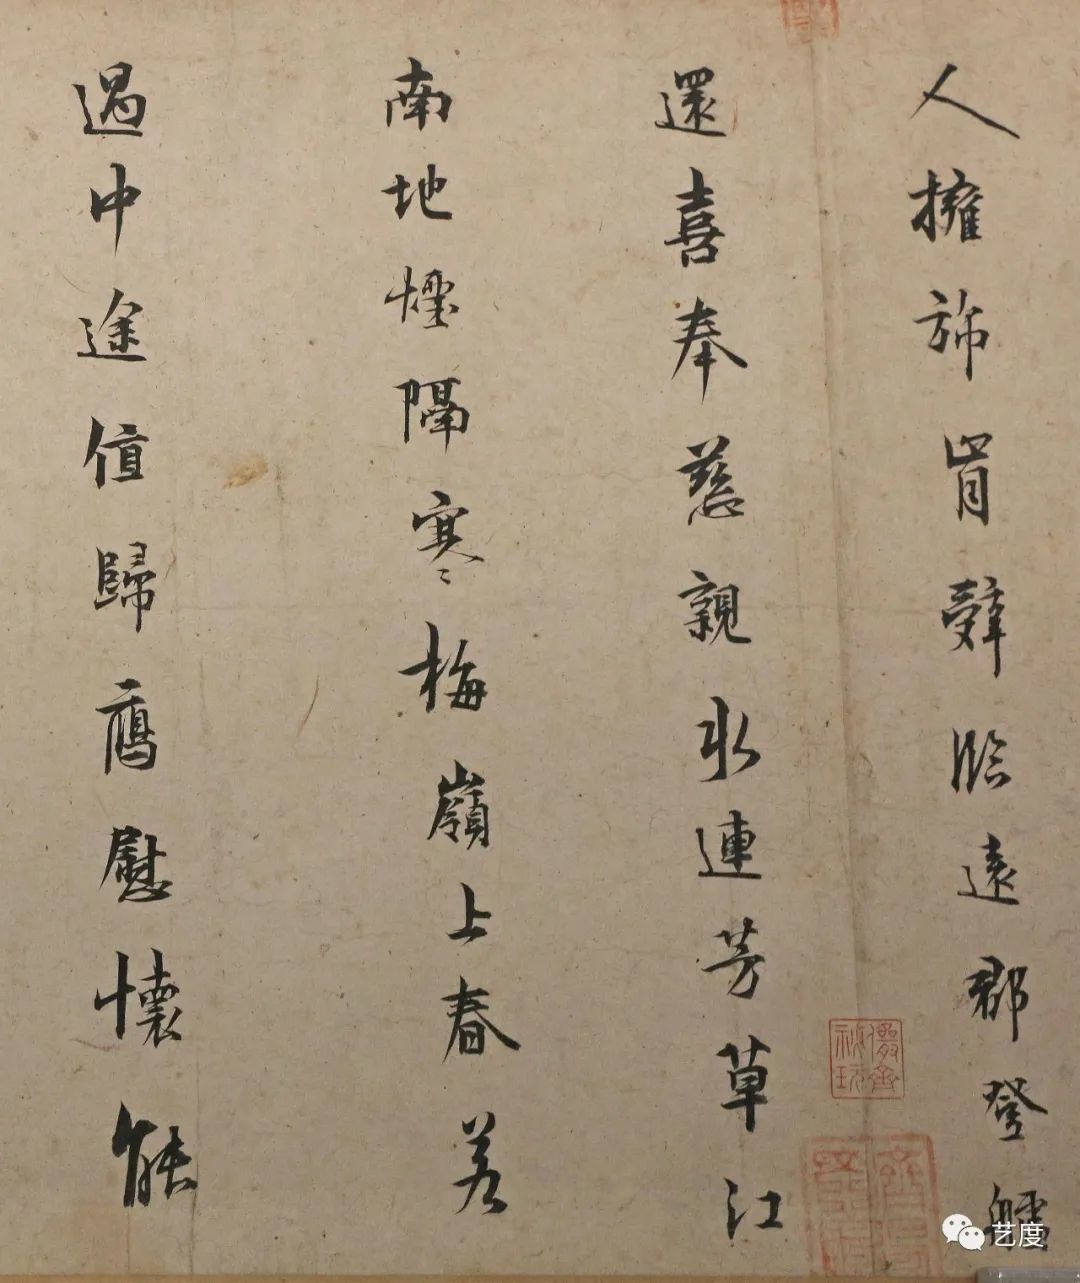 人擁旆肯辭臨遠郡登艫
還喜奉慈親水連芳草江
南地煙隔寒梅嶺上春若
過中途值歸鴈慰懷能
儼齋秘玩
艺度